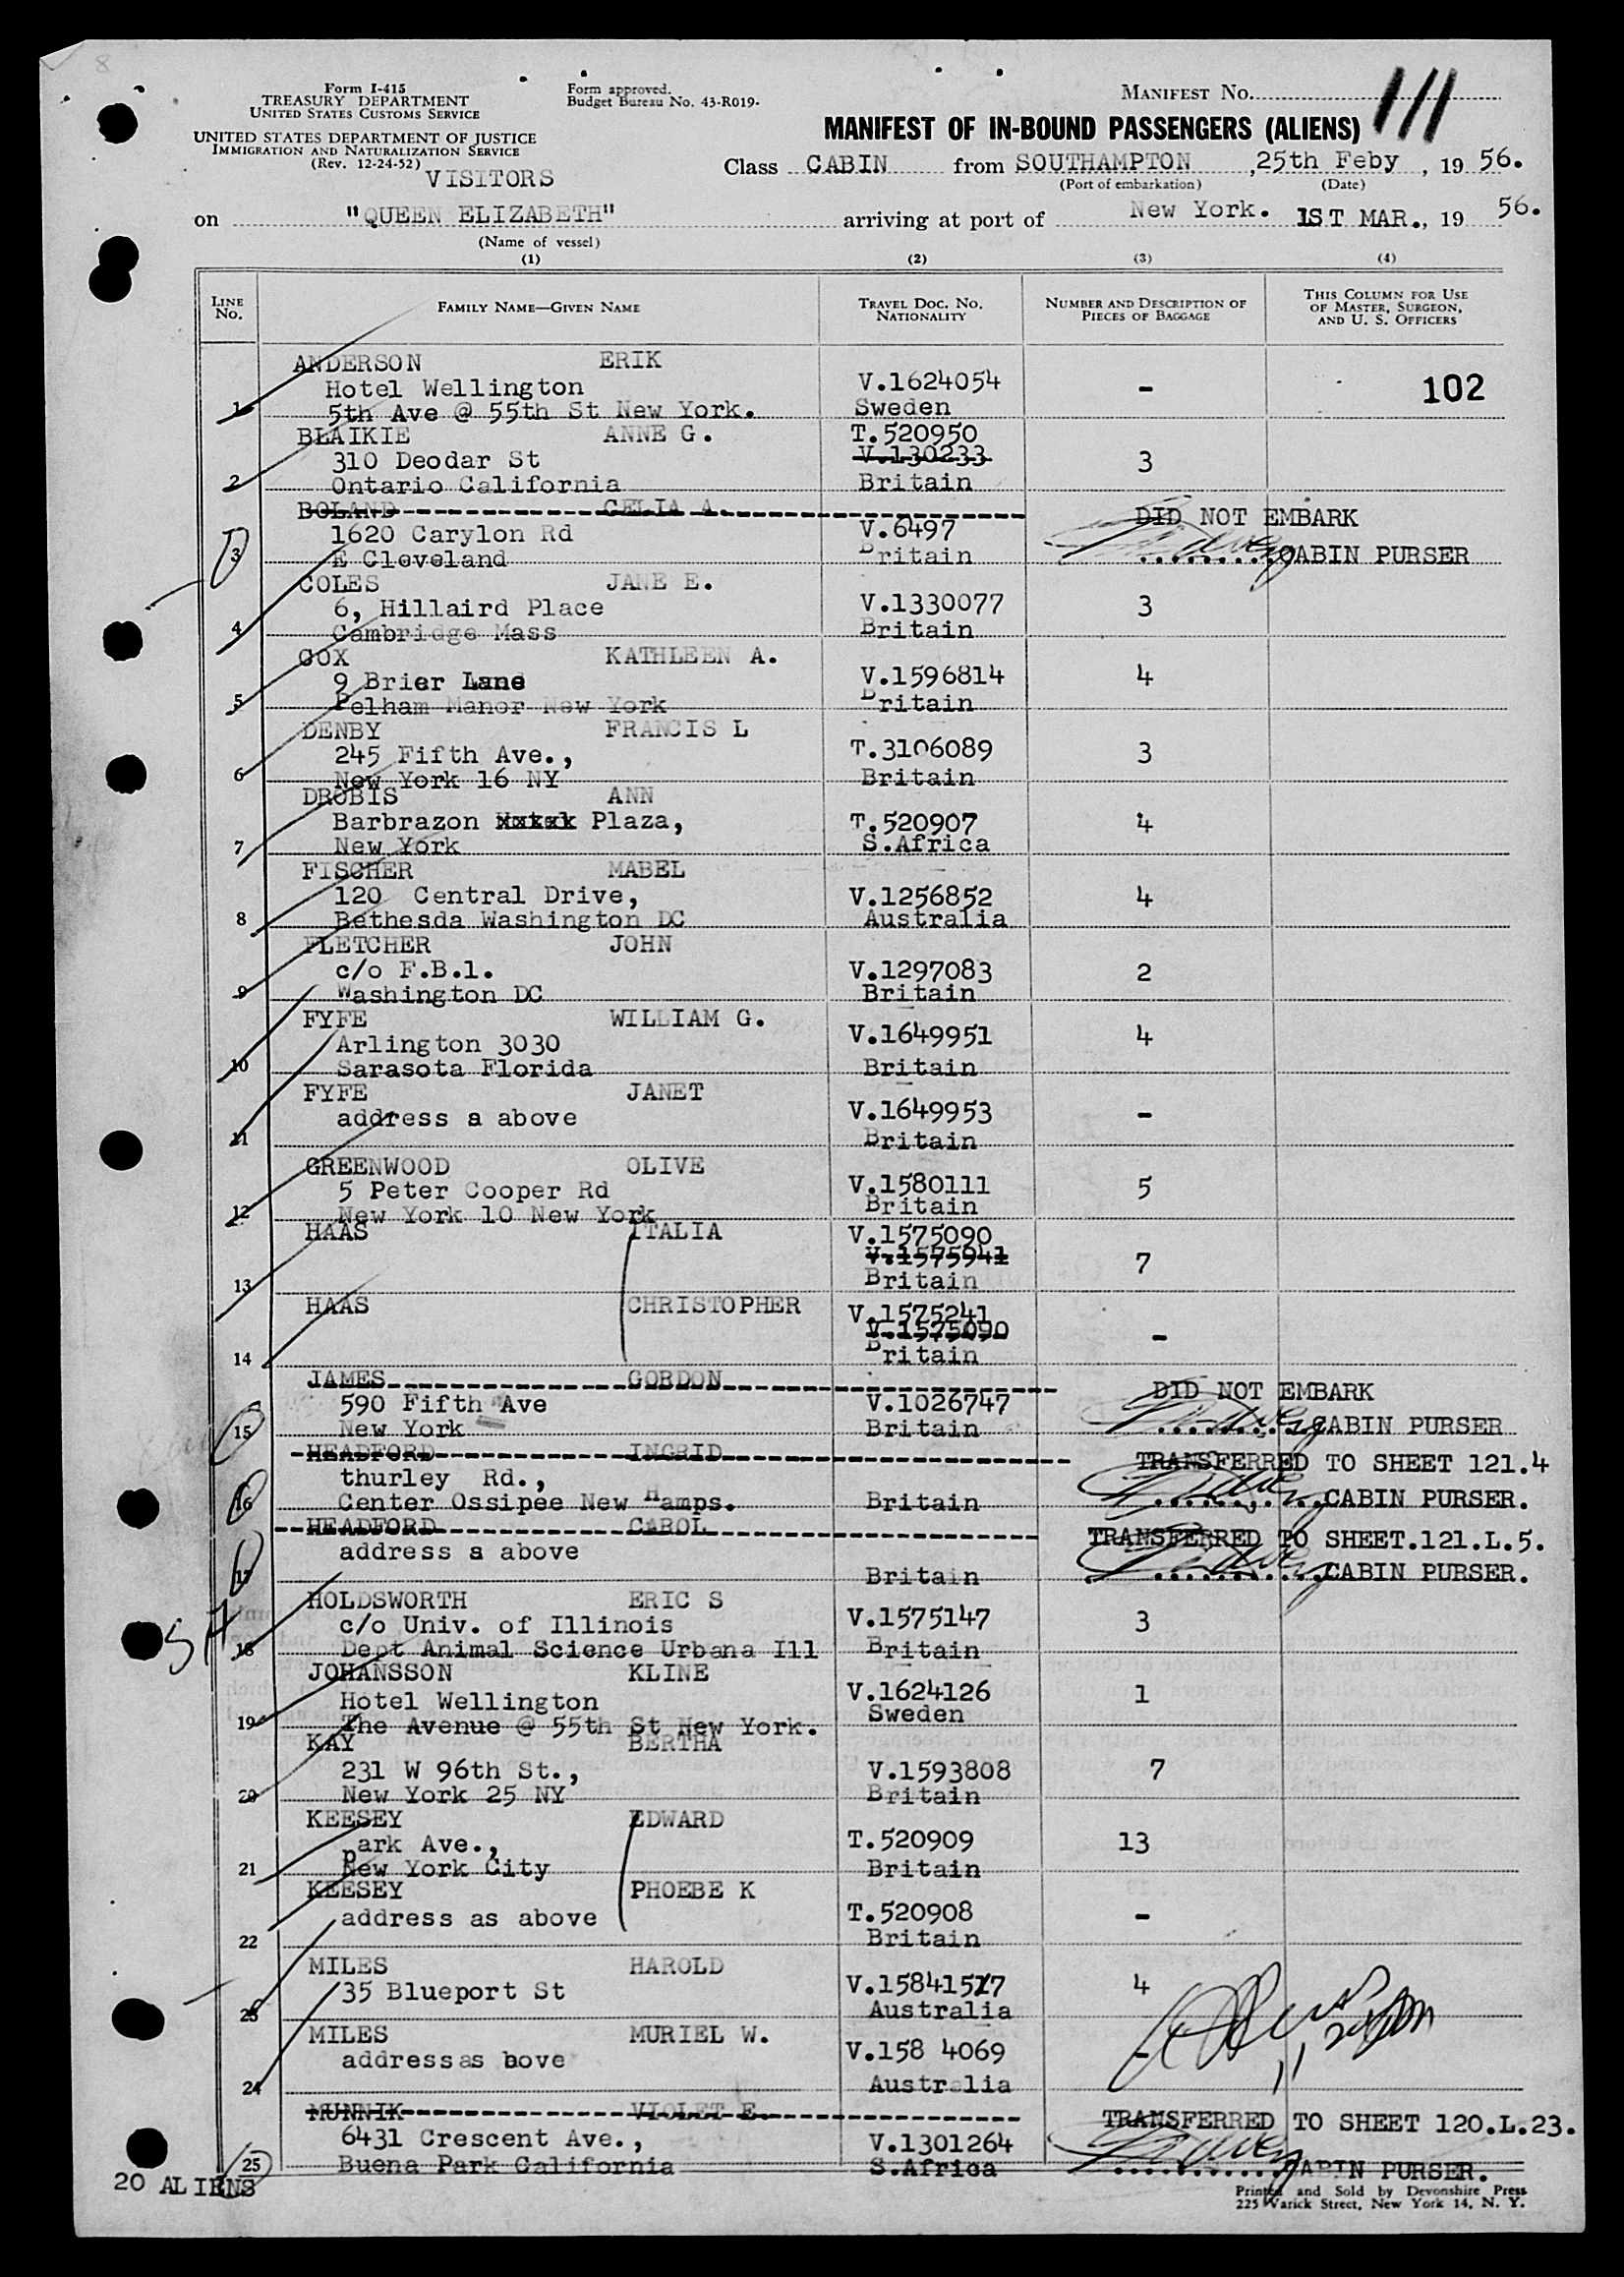 8
Form I-415
TREASURY DEPARTMENT
UNITED STATES CUSTOMS SERVICE
Form approved.
Budget Bureau No. 43-R019.
MANIFEST No. 111
UNITED STATES DEPARTMENT OF JUSTICE
IMMIGRATION AND NATURALIZATION SERVICE
(Rev. 12-24-52)
VISITORS
MANIFEST OF IN-BOUND PASSENGERS (ALIENS)
Class CABIN from SOUTHAMPTON, 25th Feby, 19 56.
(Port of embarkation) (Date)
on "QUEEN ELIZABETH" arriving at port of New York. 1ST MAR., 19 56.
(Name of vessel)
(1) (2) (3) (4)
LINE No. FAMILY NAME—GIVEN NAME TRAVEL DOC. No. NATIONALITY NUMBER AND DESCRIPTION OF PIECES OF BAGGAGE THIS COLUMN FOR USE OF MASTER, SURGEON, AND U. S. OFFICERS
ANDERSON ERIK
Hotel Wellington V.1624054 - 102
1 5th Ave @ 55th St New York. Sweden
BLAIKIE ANNE G. T.520950
310 Deodar St V.130233 3
2 Ontario California Britain
BOLAND CELIA A. DID NOT EMBARK
1620 Carylon Rd V.6497
3 E Cleveland Britain CABIN PURSER
COLES JANE E.
6, Hillaird Place V.1330077 3
4 Cambridge Mass Britain
COX KATHLEEN A.
9 Brier Lane V.1596814 4
5 Pelham Manor New York Britain
DENBY FRANCIS L
245 Fifth Ave., T.3106089 3
6 New York 16 NY Britain
DROBIS ANN
Barbrazon Plaza, T.520907 4
7 New York S.Africa
FISCHER MABEL
120 Central Drive, V.1256852 4
8 Bethesda Washington DC Australia
FLETCHER JOHN
c/o F.B.l. V.1297083 2
9 Washington DC Britain
FYFE WILLIAM G.
Arlington 3030 V.1649951 4
10 Sarasota Florida Britain
FYFE JANET
address a above V.1649953 -
11 Britain
GREENWOOD OLIVE
5 Peter Cooper Rd V.1580111 5
12 New York 10 New York Britain
HAAS ITALIA V.1575090
V.1575941 7
13 Britain
HAAS CHRISTOPHER V.1575241
V.1575090 -
14 Britain
JAMES GORDON DID NOT EMBARK
590 Fifth Ave V.1026747
15 New York Britain CABIN PURSER
HEADFORD INGRID TRANSFERRED TO SHEET 121.4
thurley Rd.,
16 Center Ossipee New Hamps. Britain CABIN PURSER.
HEADFORD CAROL TRANSFERRED TO SHEET.121.L.5.
address a above
17 Britain CABIN PURSER.
HOLDSWORTH ERIC S
c/o Univ. of Illinois V.1575147 3
18 Dept Animal Science Urbana Ill Britain
JOHANSSON KLINE
Hotel Wellington V.1624126 1
19 The Avenue @ 55th St New York. Sweden
KAY BERTHA
231 W 96th St., V.1593808 7
20 New York 25 NY Britain
KEESEY EDWARD
park Ave., T.520909 13
21 New York City Britain
KEESEY PHOEBE K
address as above T.520908 -
22 Britain
MILES HAROLD
35 Blueport St V.15841517 4
23 Australia
MILES MURIEL W.
address as bove V.158 4069 -
24 Australia
MUNNIK VIOLET E. TRANSFERRED TO SHEET 120.L.23.
6431 Crescent Ave., V.1301264
25 Buena Park California S.Africa CABIN PURSER.
20 ALIENS
Printed and Sold by Devonshire Press
225 Varick Street, New York 14, N. Y.